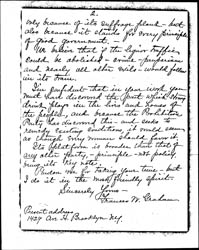 2.
only because of its suffrage plank - but
also because it stands for every principle
of good government. -
We believe that if the liquor traffic
could be abolished - crime - pauperism
and nearly all other evils - would follow
in its train.
I'm confident - that in your work you
must have discovered the part which
drink plays in the lives and homes of
the people, and because the Prohibition
Party has discovered this - and seeks to
remedy existing conditions, it would seem
as though every woman should favor it.
Its platform is broader than that of
any other party, principle - not policy,
being its key note.
Pardon me for taking your time - but
I do it in the most friendly spirit.
Sincerely Yours -
Frances W. Graham
Present address
1429 Ave H. Brooklyn N.Y.